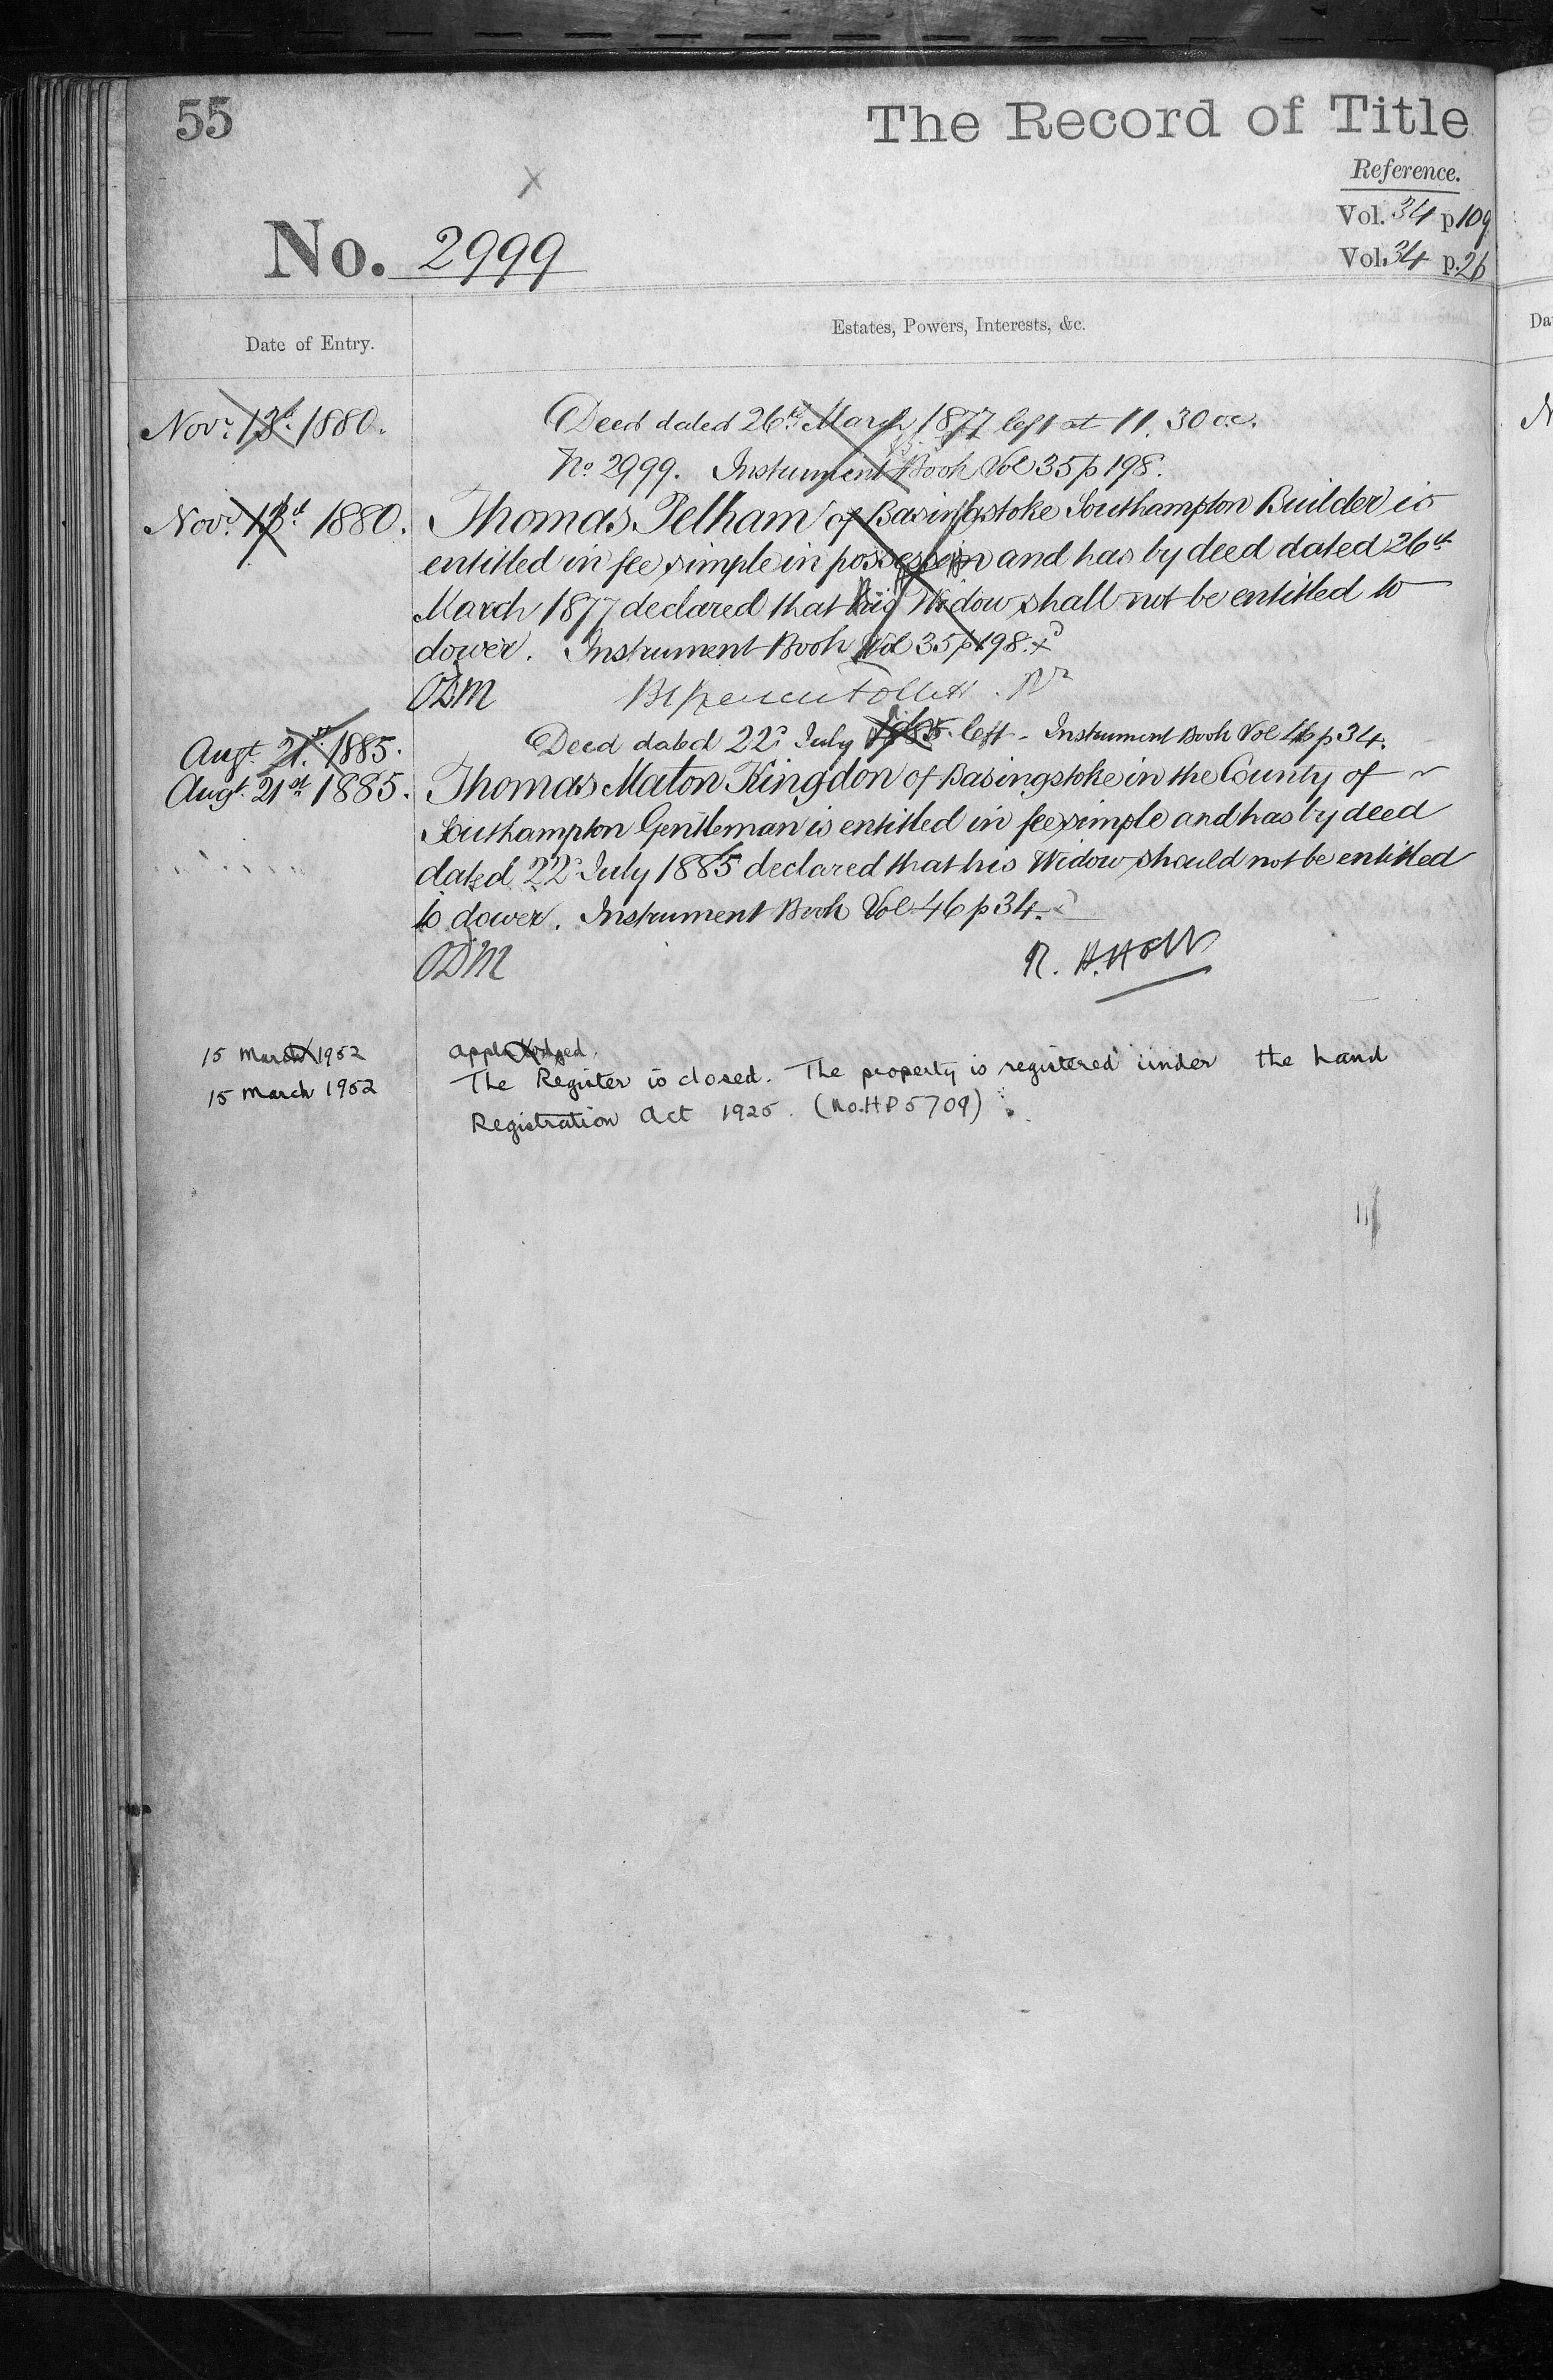 55
The Record of Title
Reference.
Vol. 34 p 109
No. 2999
Vol. 34 p. 26
Date of Entry.
Estates, Powers, Interests, &c.
Novr. 13th 1880.
Deed dated 26th March 1877 left at 11.30 oc.
No 2999. Instrument Book Vol 35 p 198.
Novr. 13th 1880.
Thomas Pelham of Basingstoke Southampton Builder is
entitled in fee simple in possession and has by deed dated 26th
March 1877 declared that his Widow shall not be entitled to
dower. Instrument Book Vol 35 p 198.
ODM
Augt. 21st 1885.
Deed dated 22d July 1885 left - Instrument Book Vol 46 p 34.
Augt. 21st 1885.
Thomas Maton Kingdon of Basingstoke in the County of
Southampton Gentleman is entitled in fee simple and has by deed
dated 22d July 1885 declared that his Widow should not be entitled
to dower. Instrument Book Vol 46 p 34.
ODM
R. H. Holt
15 March 1952
Appln lodged.
15 March 1952
The Register is closed. The property is registered under the Land
Registration Act 1925. (No. HP5709)